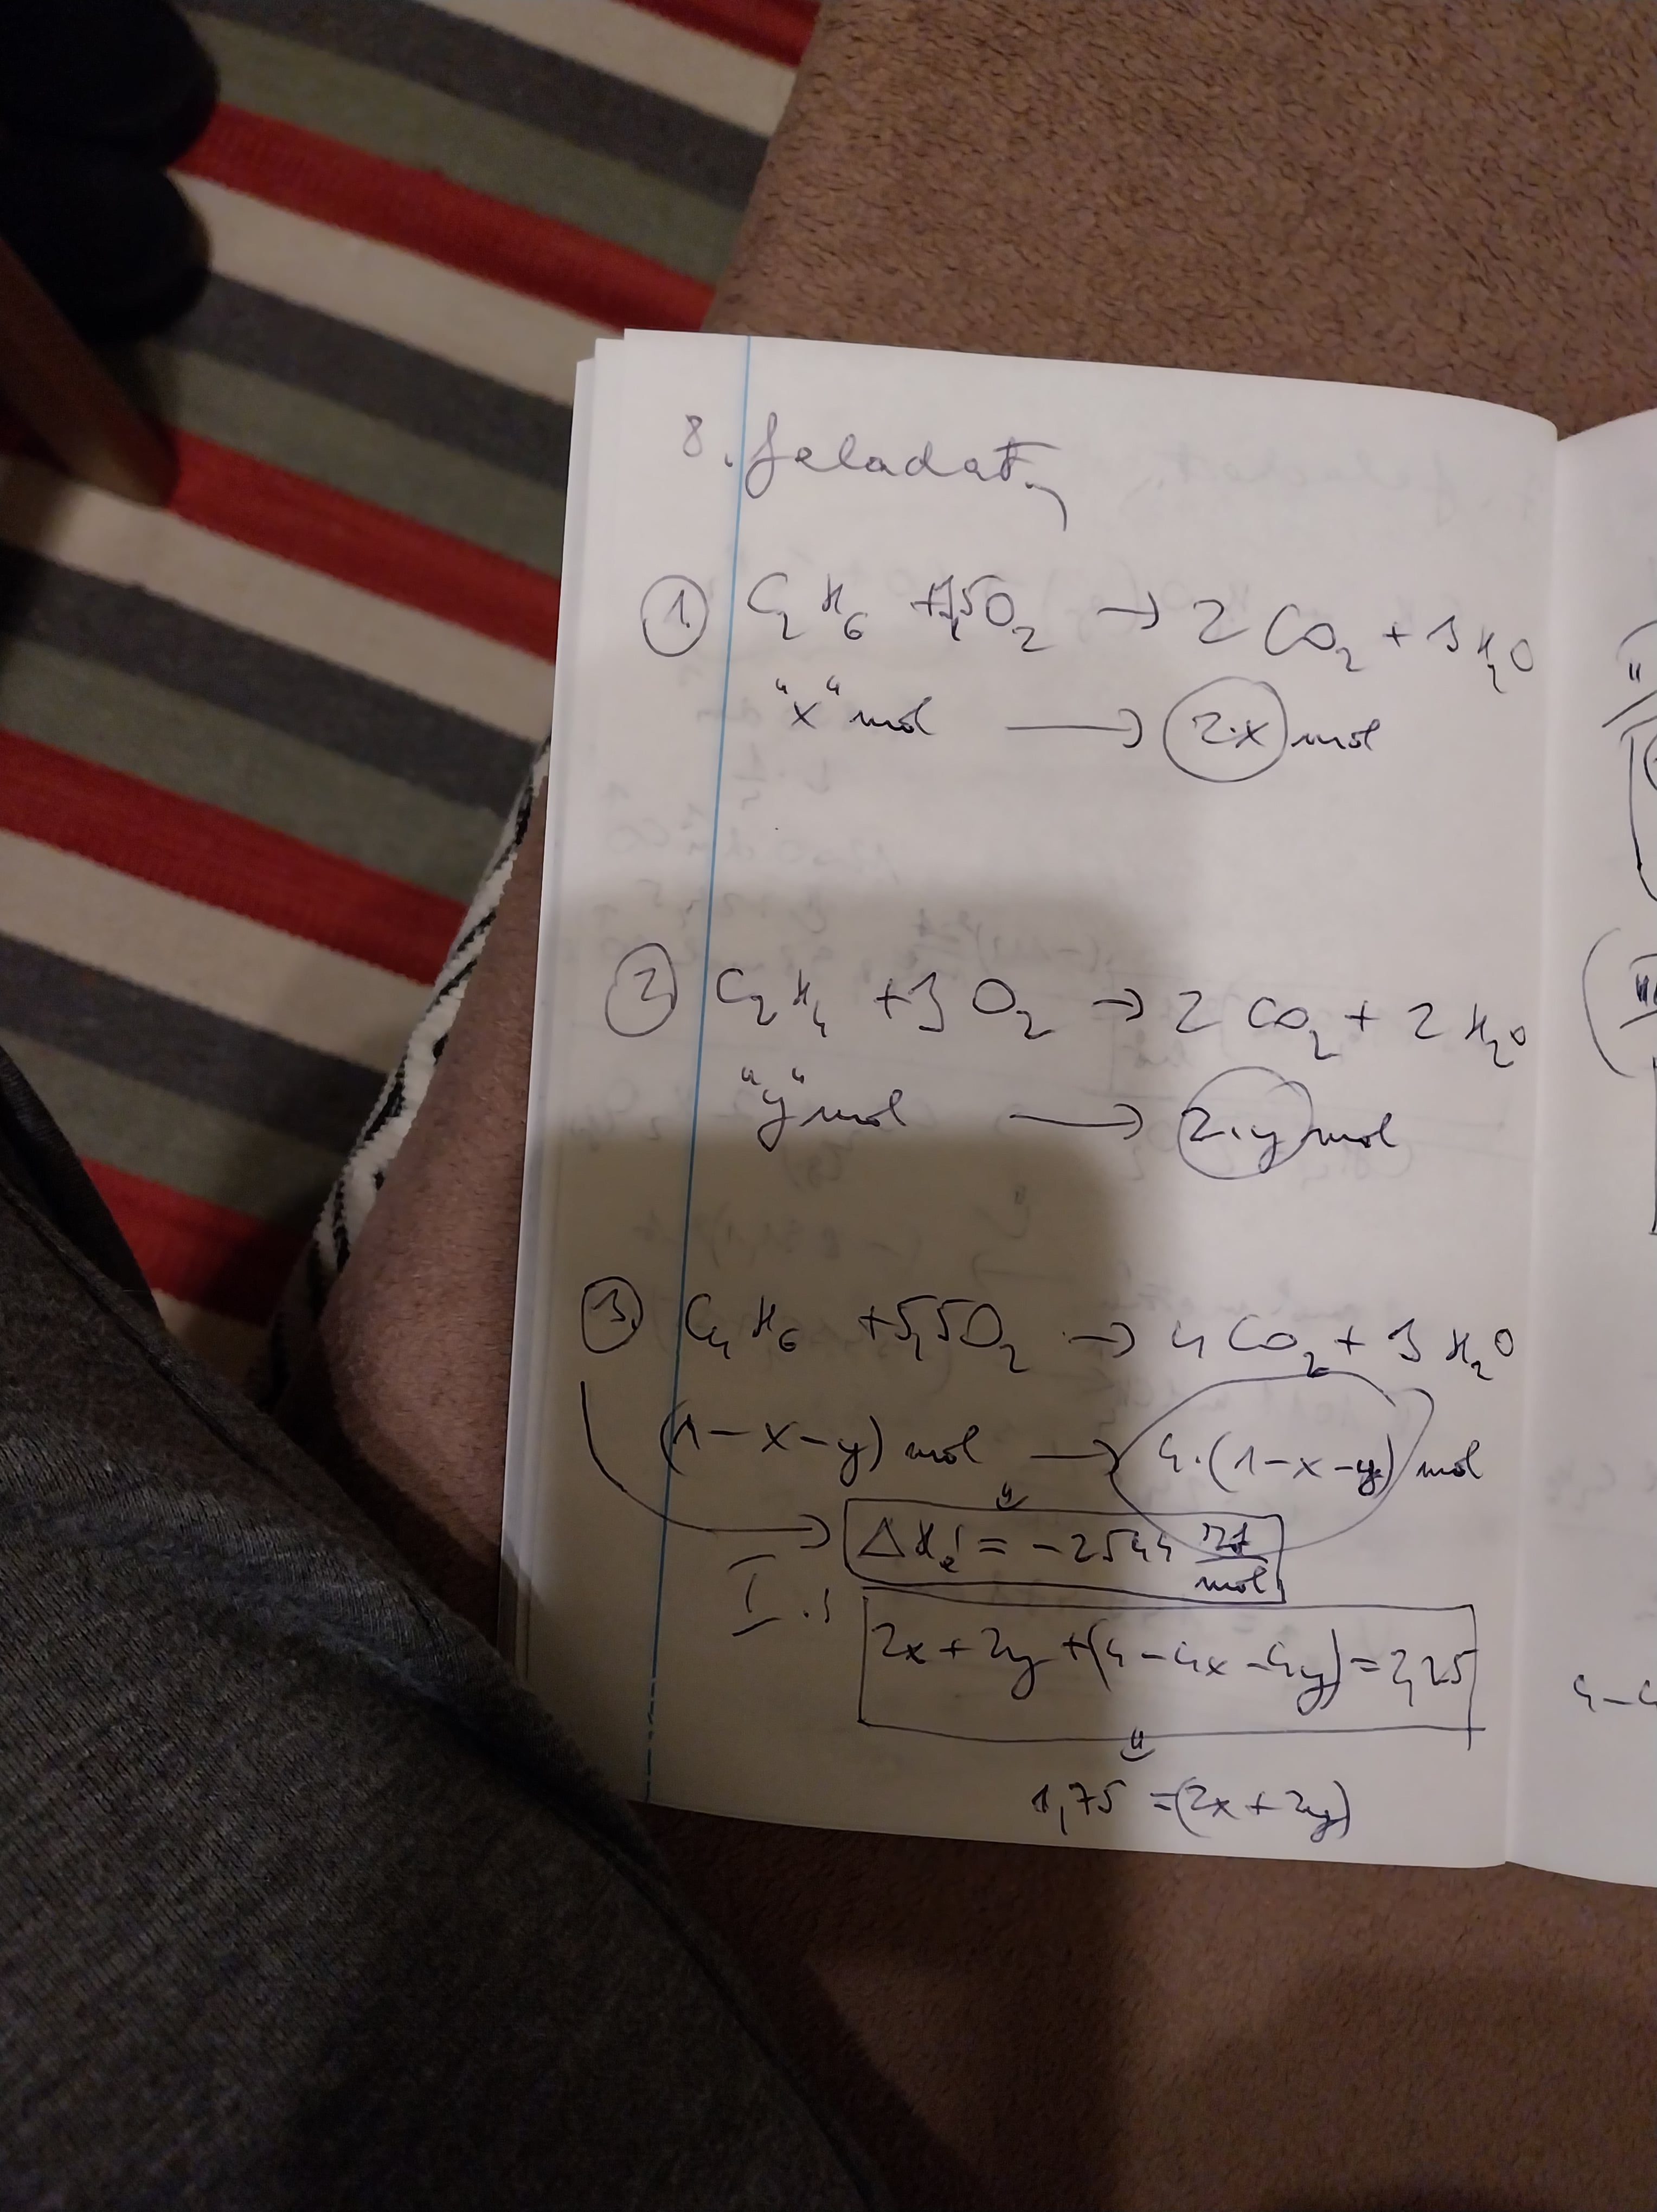 8. feladat,
① C₂H₆ + 3,5O₂ → 2 CO₂ + 3 H₂O
"x" mol → 2·x mol
② C₂H₄ + 3 O₂ → 2 CO₂ + 2 H₂O
"y" mol → 2·y mol
③ C₄H₆ + 5,5O₂ → 4 CO₂ + 3 H₂O
(1-x-y) mol → 4·(1-x-y) mol
= -2544 kJ/mol
I.:
2x + 2y + (4-4x-4y) = 2,25
1,75 = (2x + 2y)